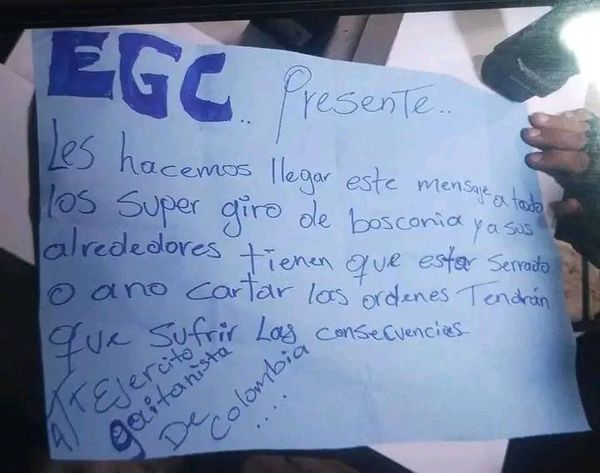 EGC.. Presente..
Les hacemos llegar este mensaje a todo
los super giro de bosconia y a sus
alrededores tienen que estar serrado
o ano cartar las ordenes Tendrán
que sufrir Las consecuencias
ATT Ejercito
gaitanista
De colombia
.....